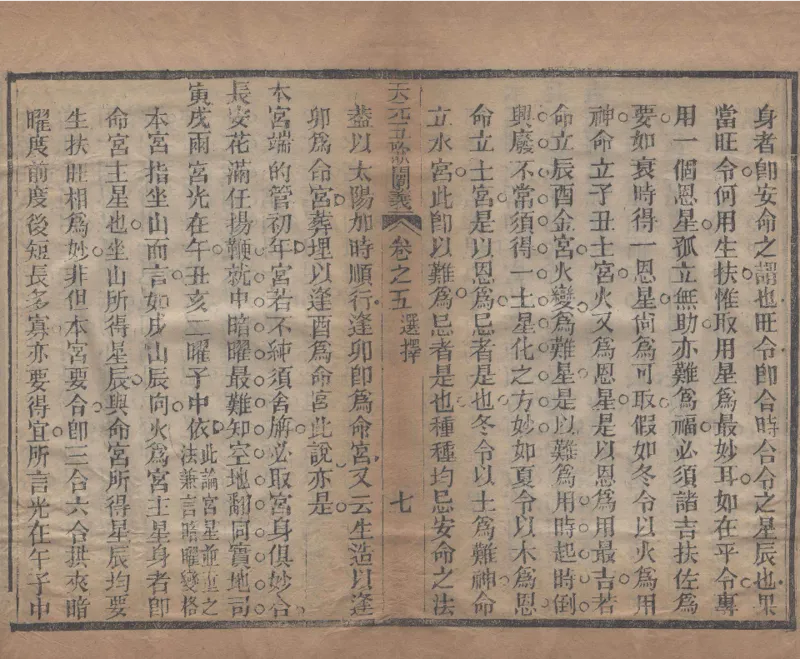 身者卽安命之謂也旺令卽合時合令之星辰也果
當旺令何用生扶惟取用星爲最妙耳如在平令專
用一個恩星孤立無助亦難爲福必須諸吉扶佐爲
要如衰時得一恩星尙爲可取假如冬令以火爲用
神命立子丑土宮火又爲恩星是以恩爲用最吉若
命立辰酉金宮火變爲難星是以難爲用時起時倒
興廢不常須得一土星化之方妙如夏令以木爲恩
命立土宮是以恩爲忌者是也冬令以土爲難神命
立水宮此卽以難爲忌者是也種種均忌安命之法
天元五歌闡義 卷之五 選擇 七
葢以太陽加時順行逢卯卽爲命宮又云生造以逢
卯爲命宮葬埋以逢酉爲命宮此說亦是
本宮端的管初年宮若不純須舍旃必取宮身俱妙合
長安花滿任揚鞭就中暗曜最難知空地翻同實地司
寅戌兩宮光在午丑亥二曜子中依此論宮星並重之
法兼言暗曜變格
本宮指坐山而言如戌山辰向火爲宮主星身者卽
命宮主星也坐山所得星辰與命宮所得星辰均要
生扶旺相爲妙非但本宮要合卽三合六合拱夾暗
曜度前度後短長多寡亦要得宜所言光在午子中